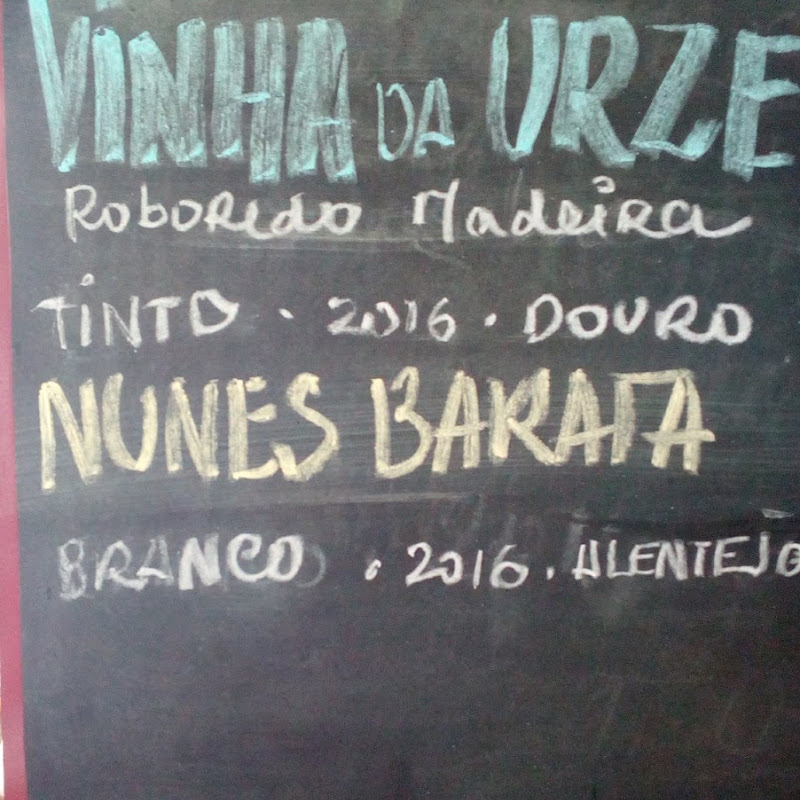 VINHA DA URZE
Roboredo Madeira
TINTO . 2016 . DOURO
NUNES BARATA
BRANCO . 2016 . ALENTEJO